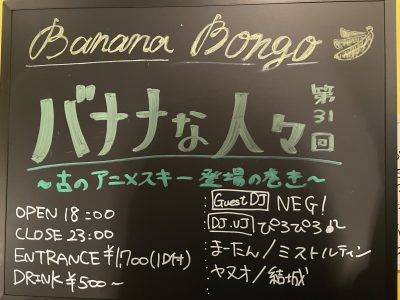 Banana Bongo
バナナな人々 第31回
～古のアニメスキー登場の巻き～
OPEN 18:00
CLOSE 23:00
ENTRANCE ¥1,700(1D付)
DRINK ¥500～
Guest DJ NEG!
DJ.VJ ぴろぴろ♪
まーたん/ミストルティン
ヤヌオ/結城